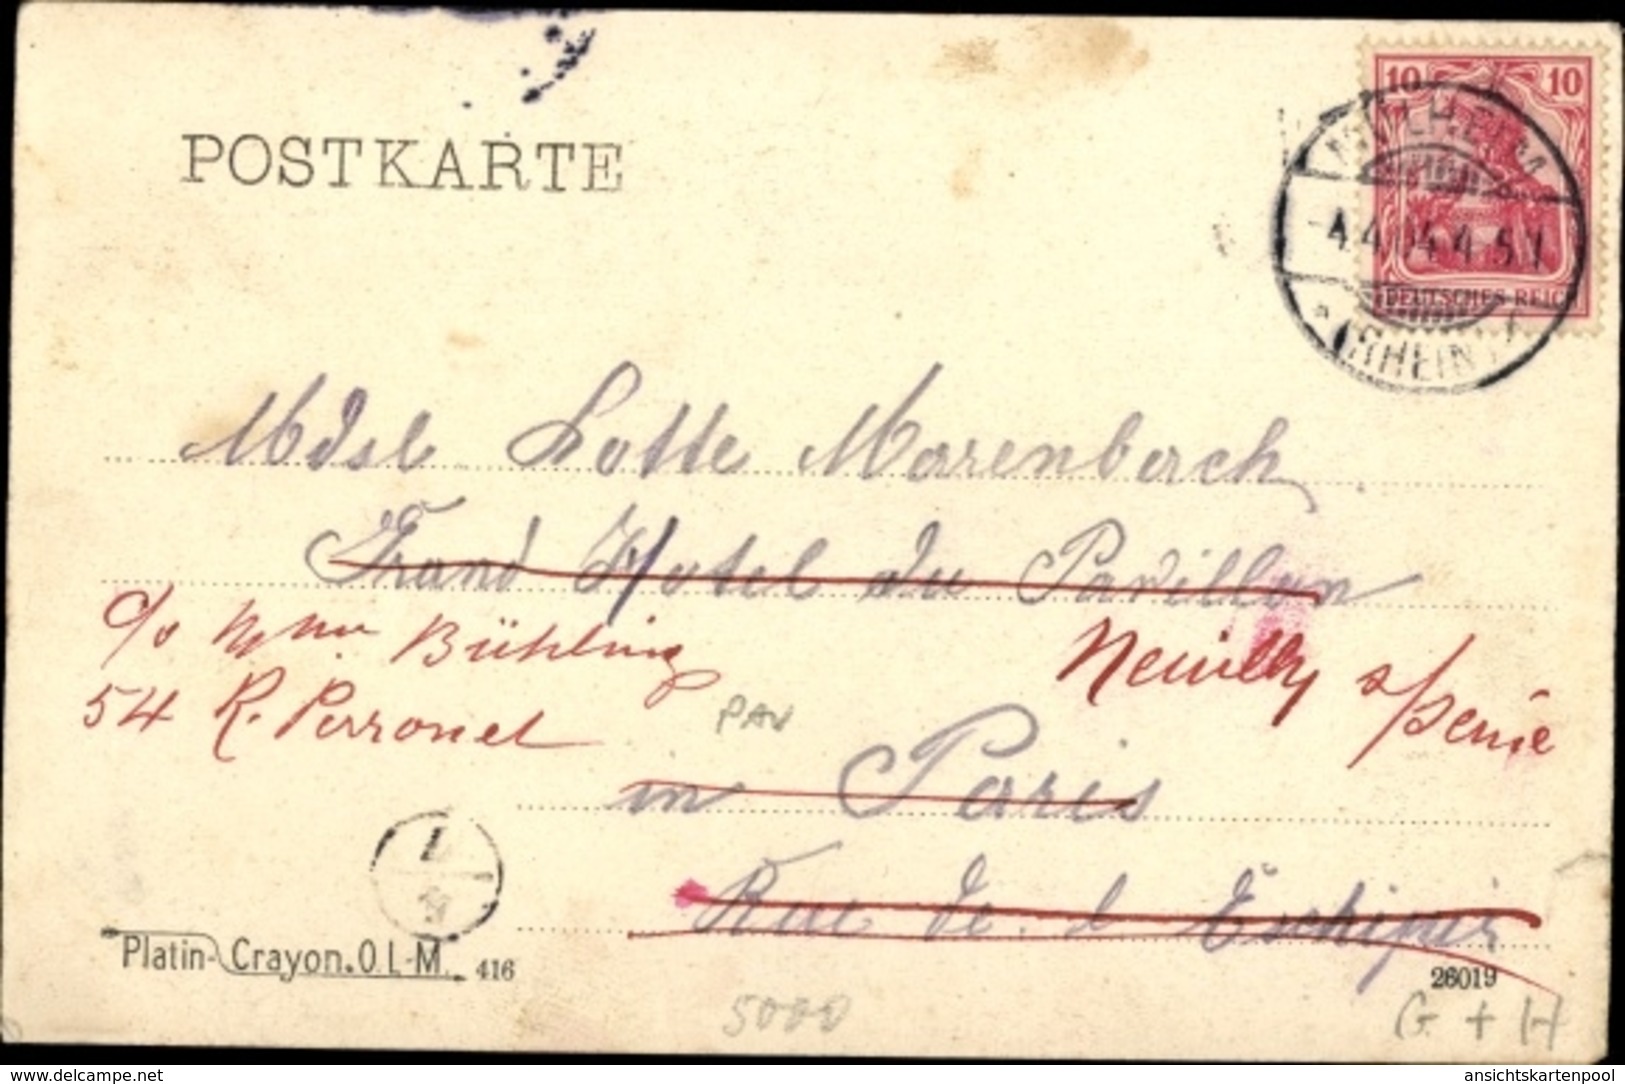 POSTKARTE
10 10
MÜLHEIM
-4.4.04.4-5.
DEUTSCHES REICH
(RHEIN)
Mdsl Lotte Marenbach
Grand Hotel du Pavillon
c/o Mme Bühling
Neuilly s/Seine
54 R. Perronet
PAV
in Paris
Rue de l Echiquier
Platin-Crayon.O.L-M. 416
26019
5000
G + H
www.delcampe.net
ansichtskartenpool